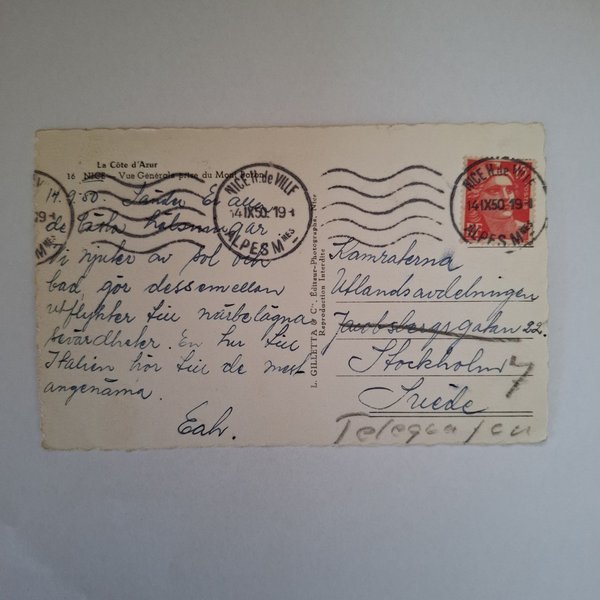 La Côte d'Azur
16 NICE - Vue Générale prise du Mont Boron
14.9.50. Sänder Er alla
de bästa hälsningar
Vi njuter av sol och
bad gör dessemellan
utflykter till närbelägna
sevärdheter. En tur till
Italien hör till de mest
angenäma.
L. GILLETTA & Cie, Éditeur-Photographe, Nice
Reproduction Interdite
NICE H. de VILLE
14 IX50. 19-
ALPES Mmes
NICE H. de VILLE
14 IX50. 19-
ALPES Mmes
Kamraterna
Utlandsavdelningen
Jacobsbergsgatan 22.
Stockholm 7
Suède
Telegrafen